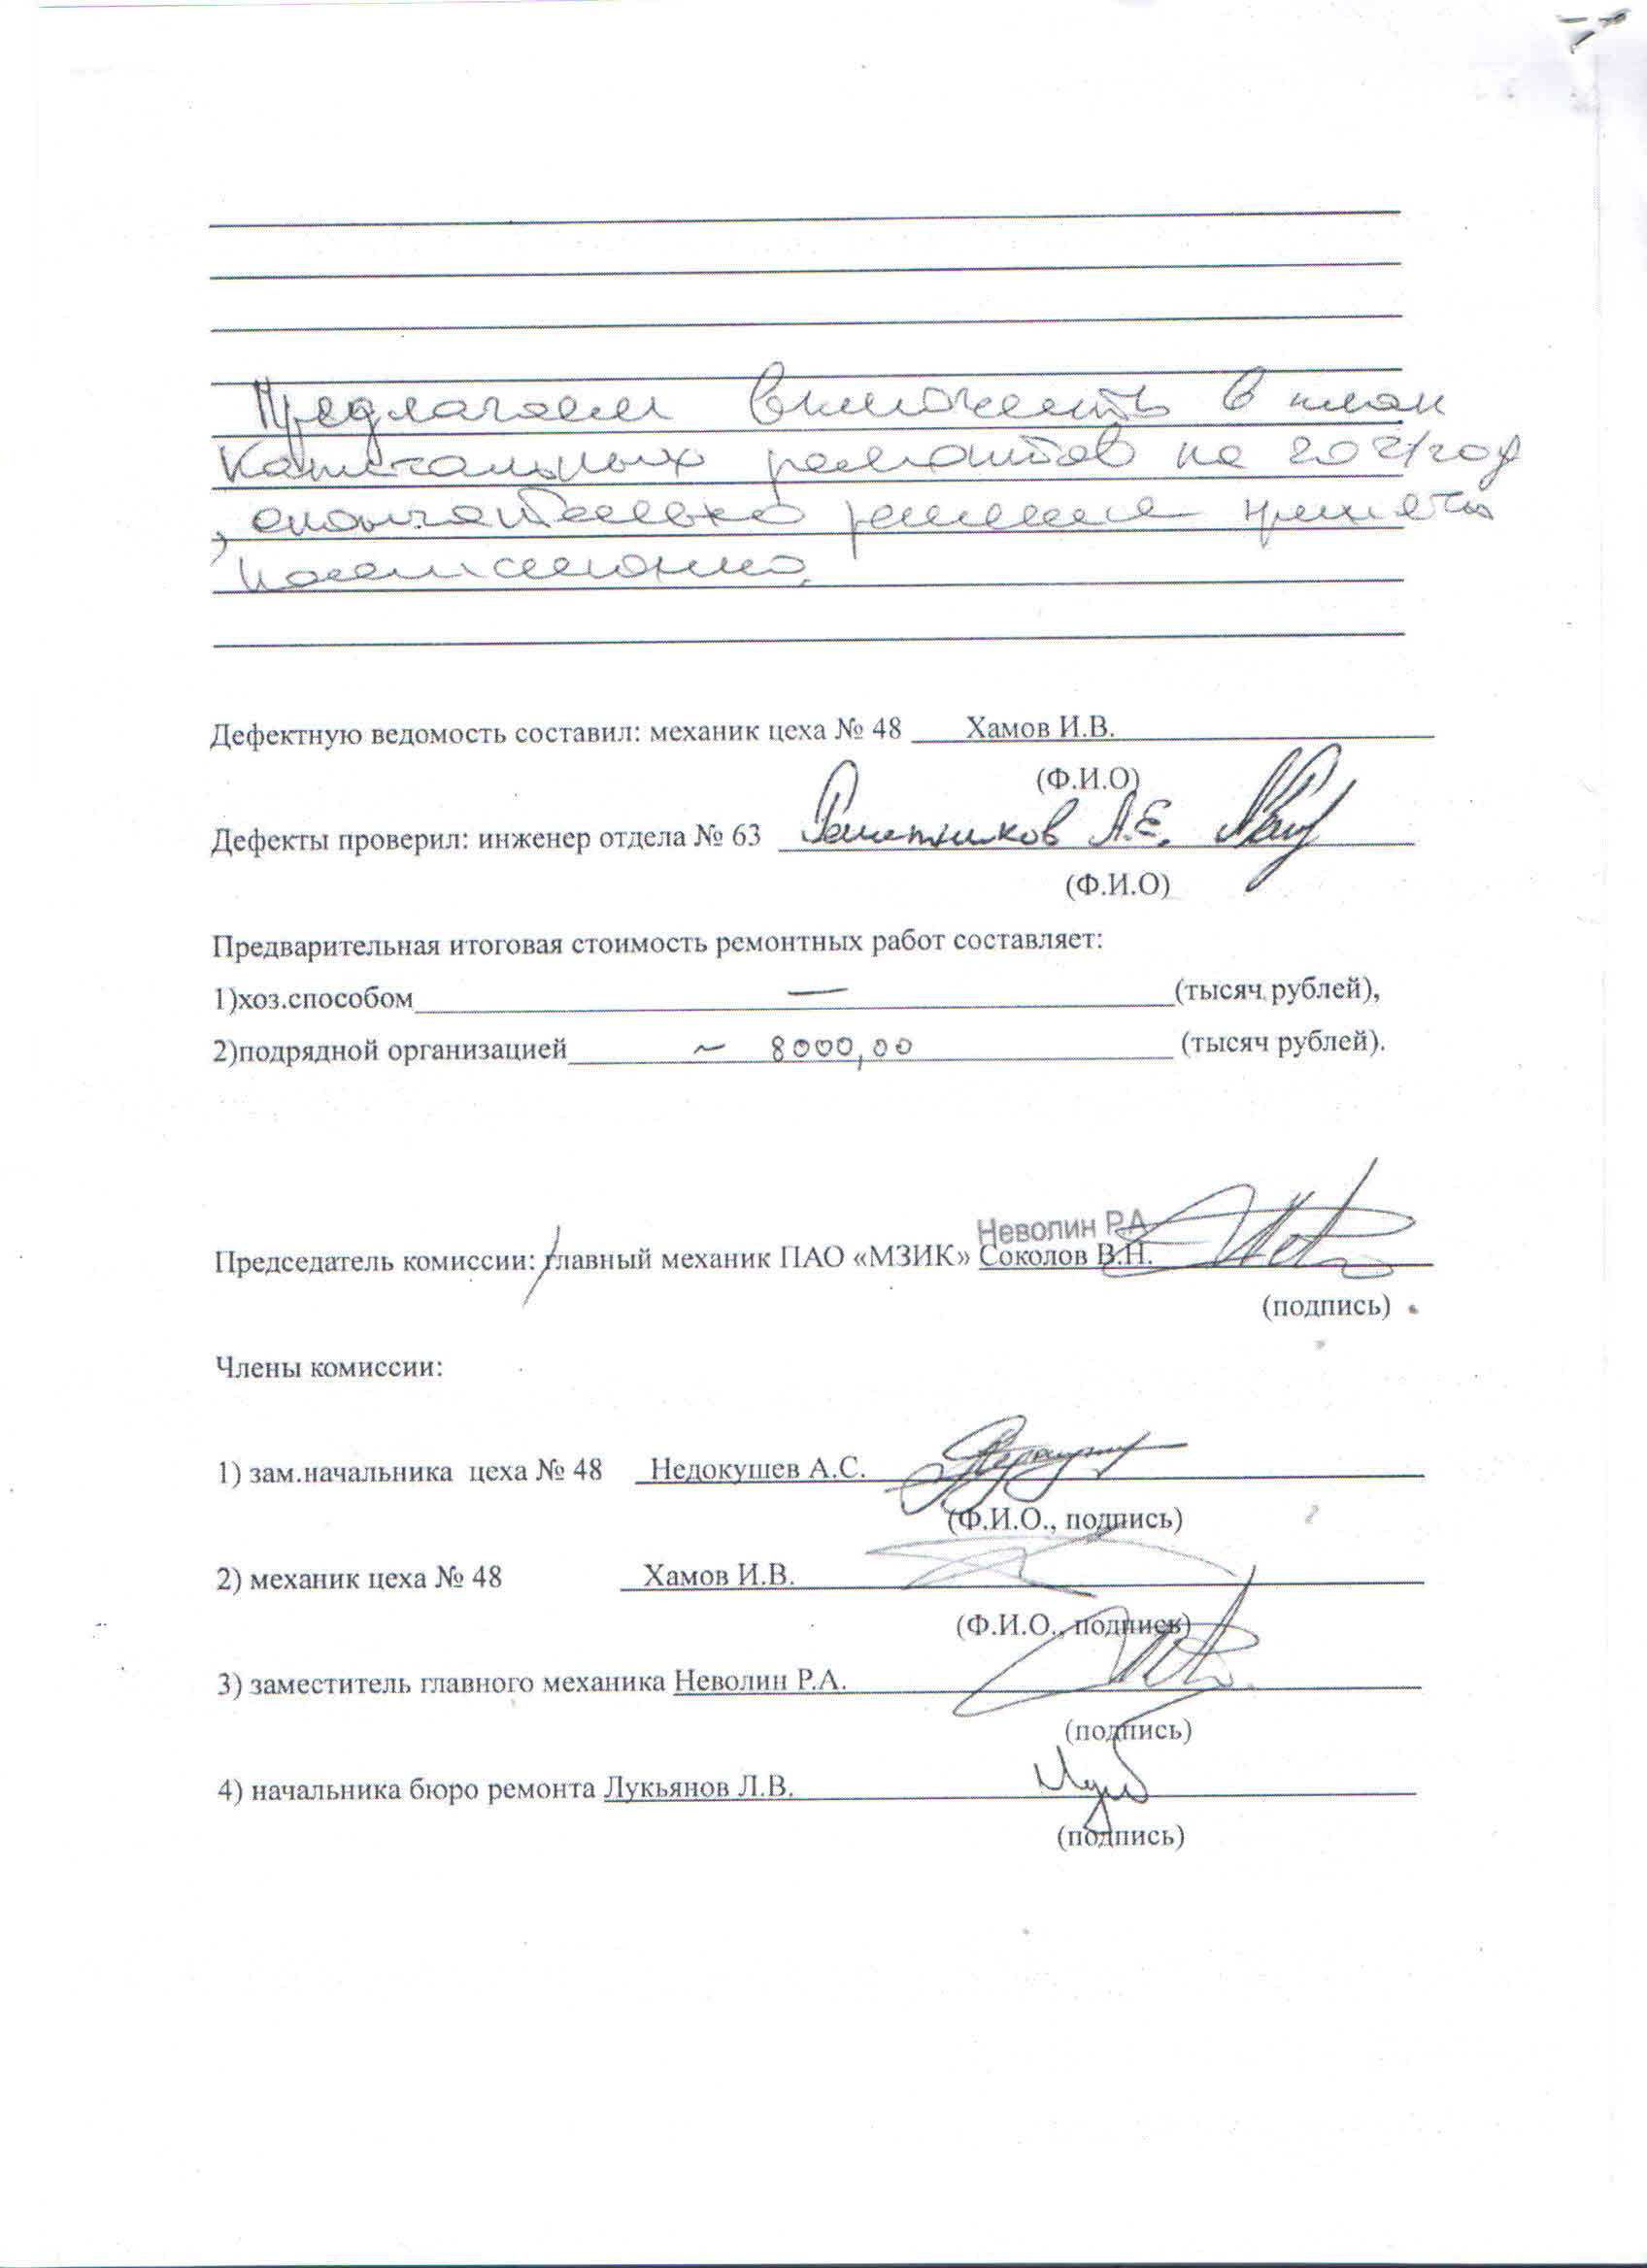 Предлагаем включить в план
капитальных ремонтов на 2021 год
, окончательно решение принять
комиссионно.
Дефектную ведомость составил: механик цеха № 48 Хамов И.В.
(Ф.И.О)
Дефекты проверил: инженер отдела № 63 Решетников А.Е.
(Ф.И.О)
Предварительная итоговая стоимость ремонтных работ составляет:
1)хоз.способом — (тысяч рублей),
2)подрядной организацией ~ 8000,00 (тысяч рублей).
Неволин Р.А
Председатель комиссии: главный механик ПАО «МЗИК» Соколов В.Н.
(подпись)
Члены комиссии:
1) зам.начальника цеха № 48 Недокушев А.С.
(Ф.И.О., подпись)
2) механик цеха № 48 Хамов И.В.
(Ф.И.О., подпись)
3) заместитель главного механика Неволин Р.А.
(подпись)
4) начальника бюро ремонта Лукьянов Л.В.
(подпись)